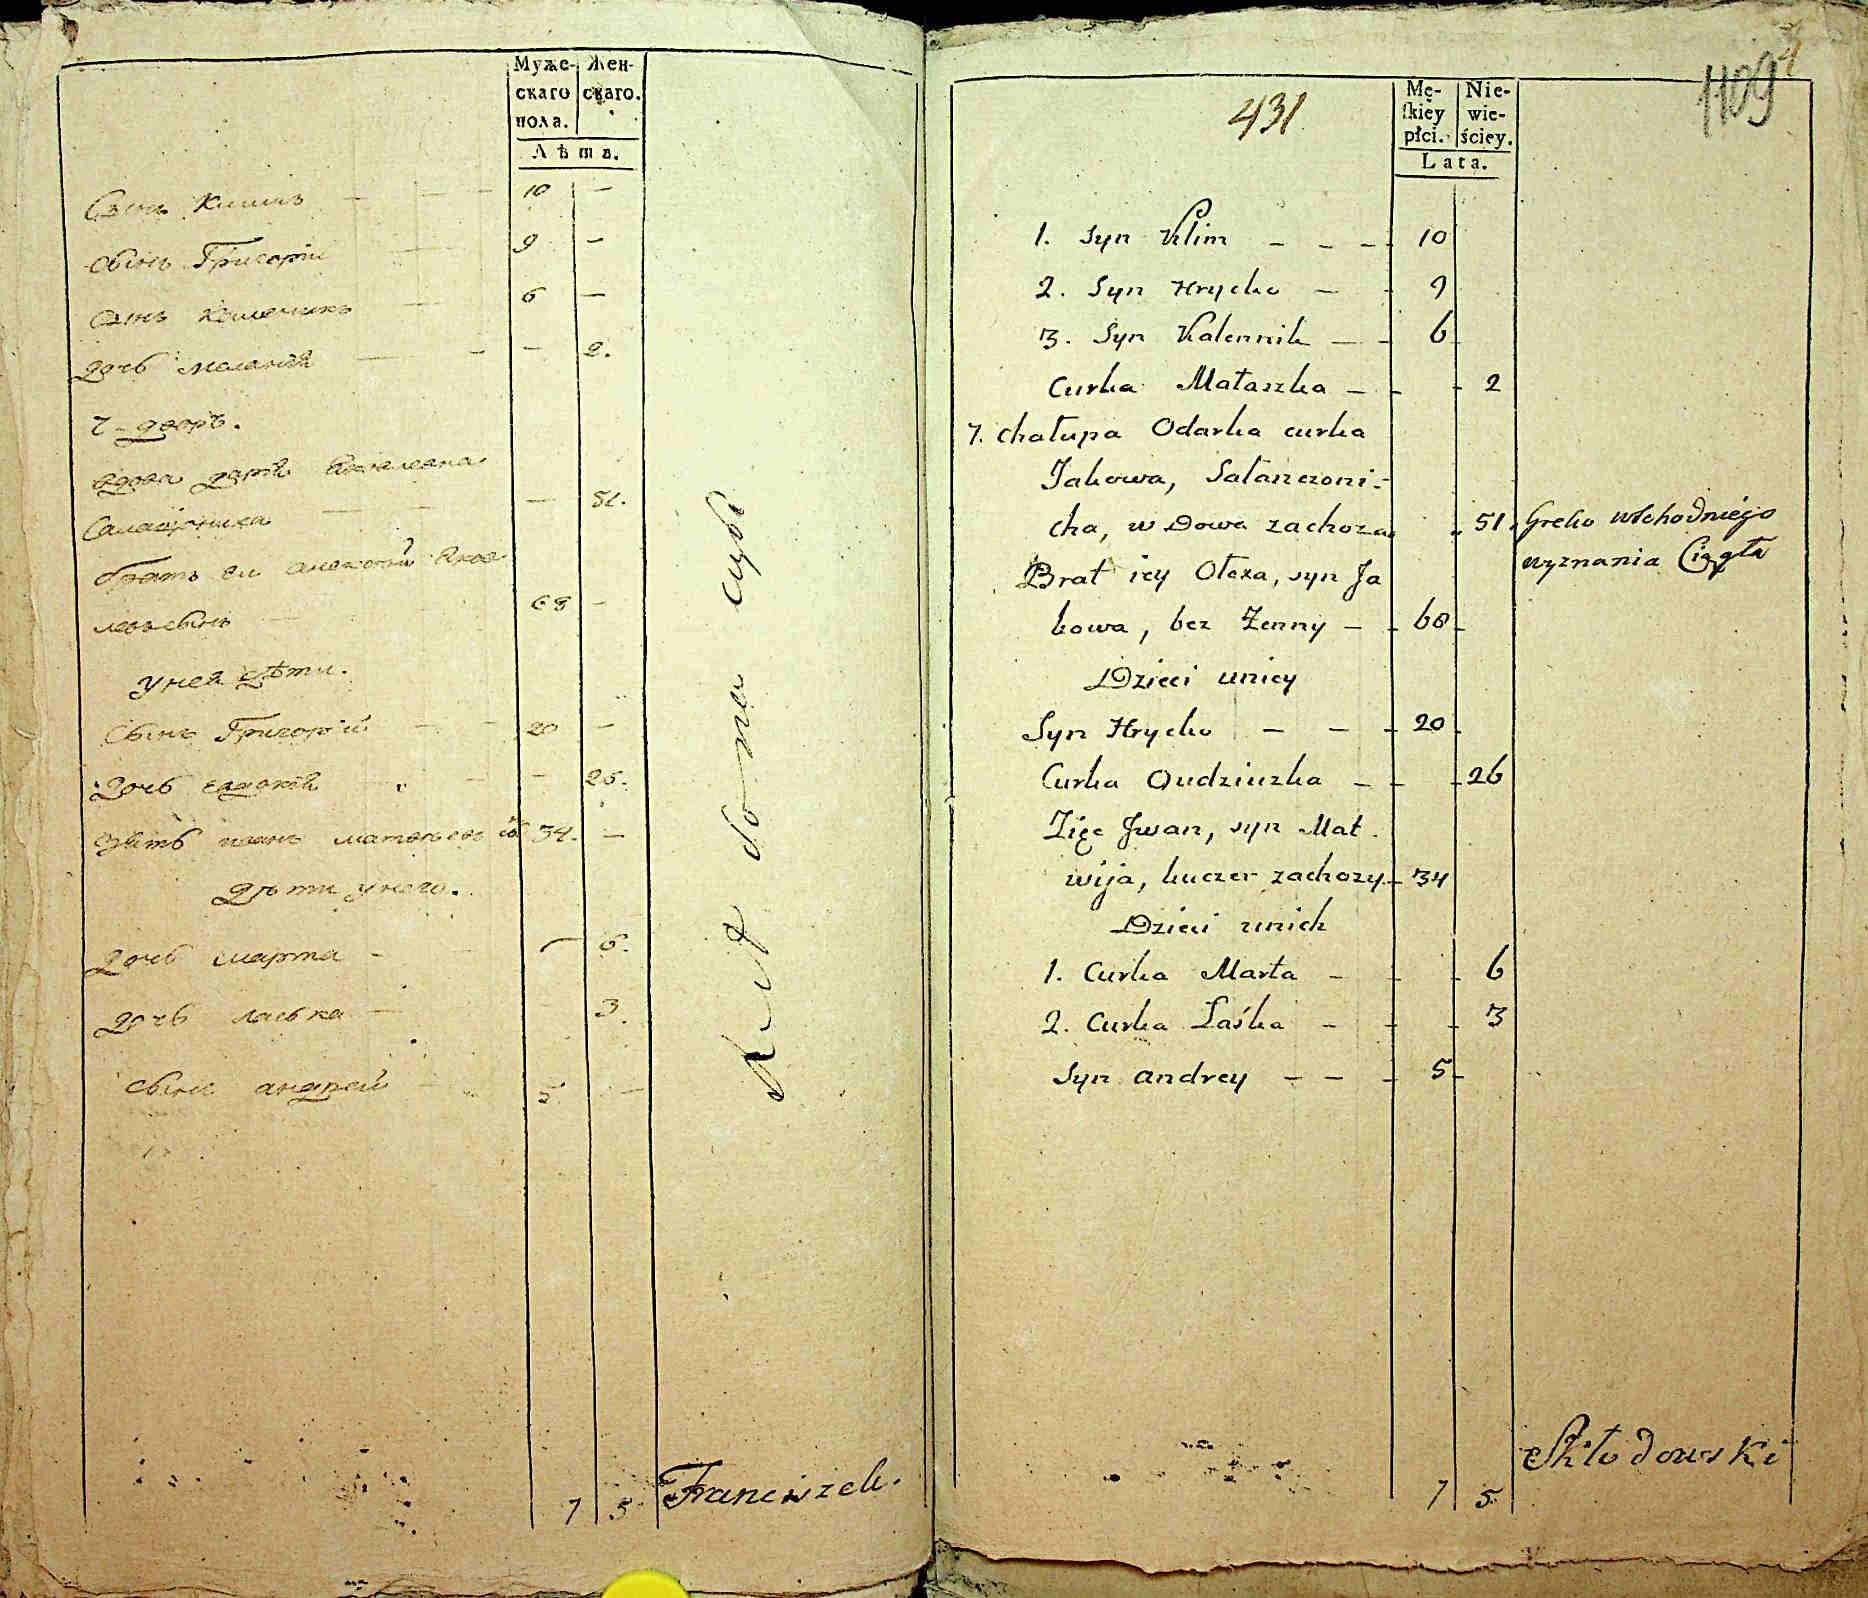 Муже- Жен-
скаго скаго.
пола.
Лѣта.
Сынъ Климъ — — — 10 —
Сынъ Григорій — — 9 —
Сынъ — 6 —
дочь Маланія — — — 2.
7 - дворъ.
вдова дарія
— 51.
братъ ей алексѣй Яков
левъ сынъ — 68 —
у ней дѣти.
Сынъ Григорій — — 20 —
дочь евдокія — — — 26.
зять иванъ матвѣевъ 34. —
дѣти у него.
дочь марта — — 6.
дочь ласька — 3.
Сынъ андрей — 5 —
7 5
Franciszek.
431
1109
4
Mę- Nie-
skiéy wie-
płci. ściey.
Lata.
1. Syn Klim — — — 10
2. Syn Hrycko — - 9
3. Syn Kalennik — - 6
Curka Małaszka — - - 2
7. Chałupa Odarka curka
Jakowa, Sałanczoni-
cha, wdowa zachoza 51. Greko wschodniejo
wyznania Ciągła
Brat iey Ołexa, syn Ja
kowa, bez Żenny — - 68
Dzieci uniey
Syn Hrycko — — - 20
Curka Oudziuszka — - - 26
Zięć Jwan, syn Mat-
wija, kuczer zachozy - 34
Dzieci unich
1. Curka Marta — - - 6
2. Curka Łaśka - - - 3
Syn andrey — — - 5
7 5
Skłodowski